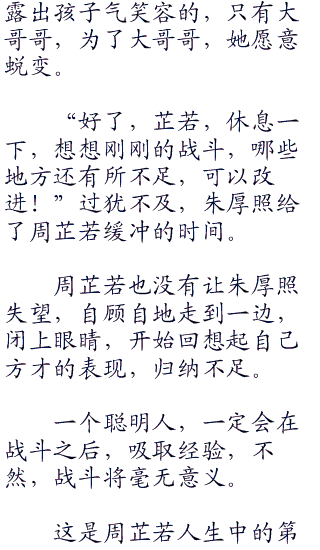 露出孩子气笑容的，只有大
哥哥，为了大哥哥，她愿意
蜕变。
“好了，芷若，休息一
下，想想刚刚的战斗，哪些
地方还有所不足，可以改
进！”过犹不及，朱厚照给
了周芷若缓冲的时间。
周芷若也没有让朱厚照
失望，自顾自地走到一边，
闭上眼睛，开始回想起自己
方才的表现，归纳不足。
一个聪明人，一定会在
战斗之后，吸取经验，不
然，战斗将毫无意义。
这是周芷若人生中的第